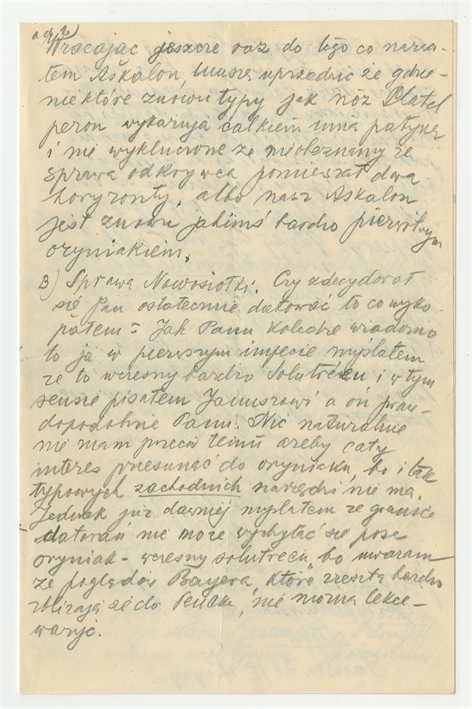 Wracając jeszcze raz do tego co nazwa-
łem Askalon, muszę uprzedzić że gdzie-
niektóre znowu typy jak nóż Chatel
peron wykazują całkiem inną patynę
i nie wykluczone że nieobeznany ze
sprawą odkrywca pomieszał dwa
horyzonty, albo nasz Askalon
jest znowu jakimś bardzo pierwotnym
oryniakiem.
B) Sprawa Nowosiółki. Czy zdecydował
się Pan ostatecznie datować to co wyko-
pałem? Jak Panu Koledze wiadomo
to ja w pierwszym impecie myślałem
że to wczesny bardzo Solutreen i w tym
sensie pisałem Januszowi a on praw-
dopodobnie Panu. Nic naturalnie
nie mam przeciw temu ażeby cały
interes przesunąć do oryniaku, bo i tak
typowych zachodnich narzędzi nie ma.
Jednak już dawniej myślałem że granice
datowań nie może wychylać się poza
oryniak - wczesny solutreen bo uważam
że poglądów Bayera, które zresztą bardzo
zbliżają się do Pana, nie można lekce-
ważyć.